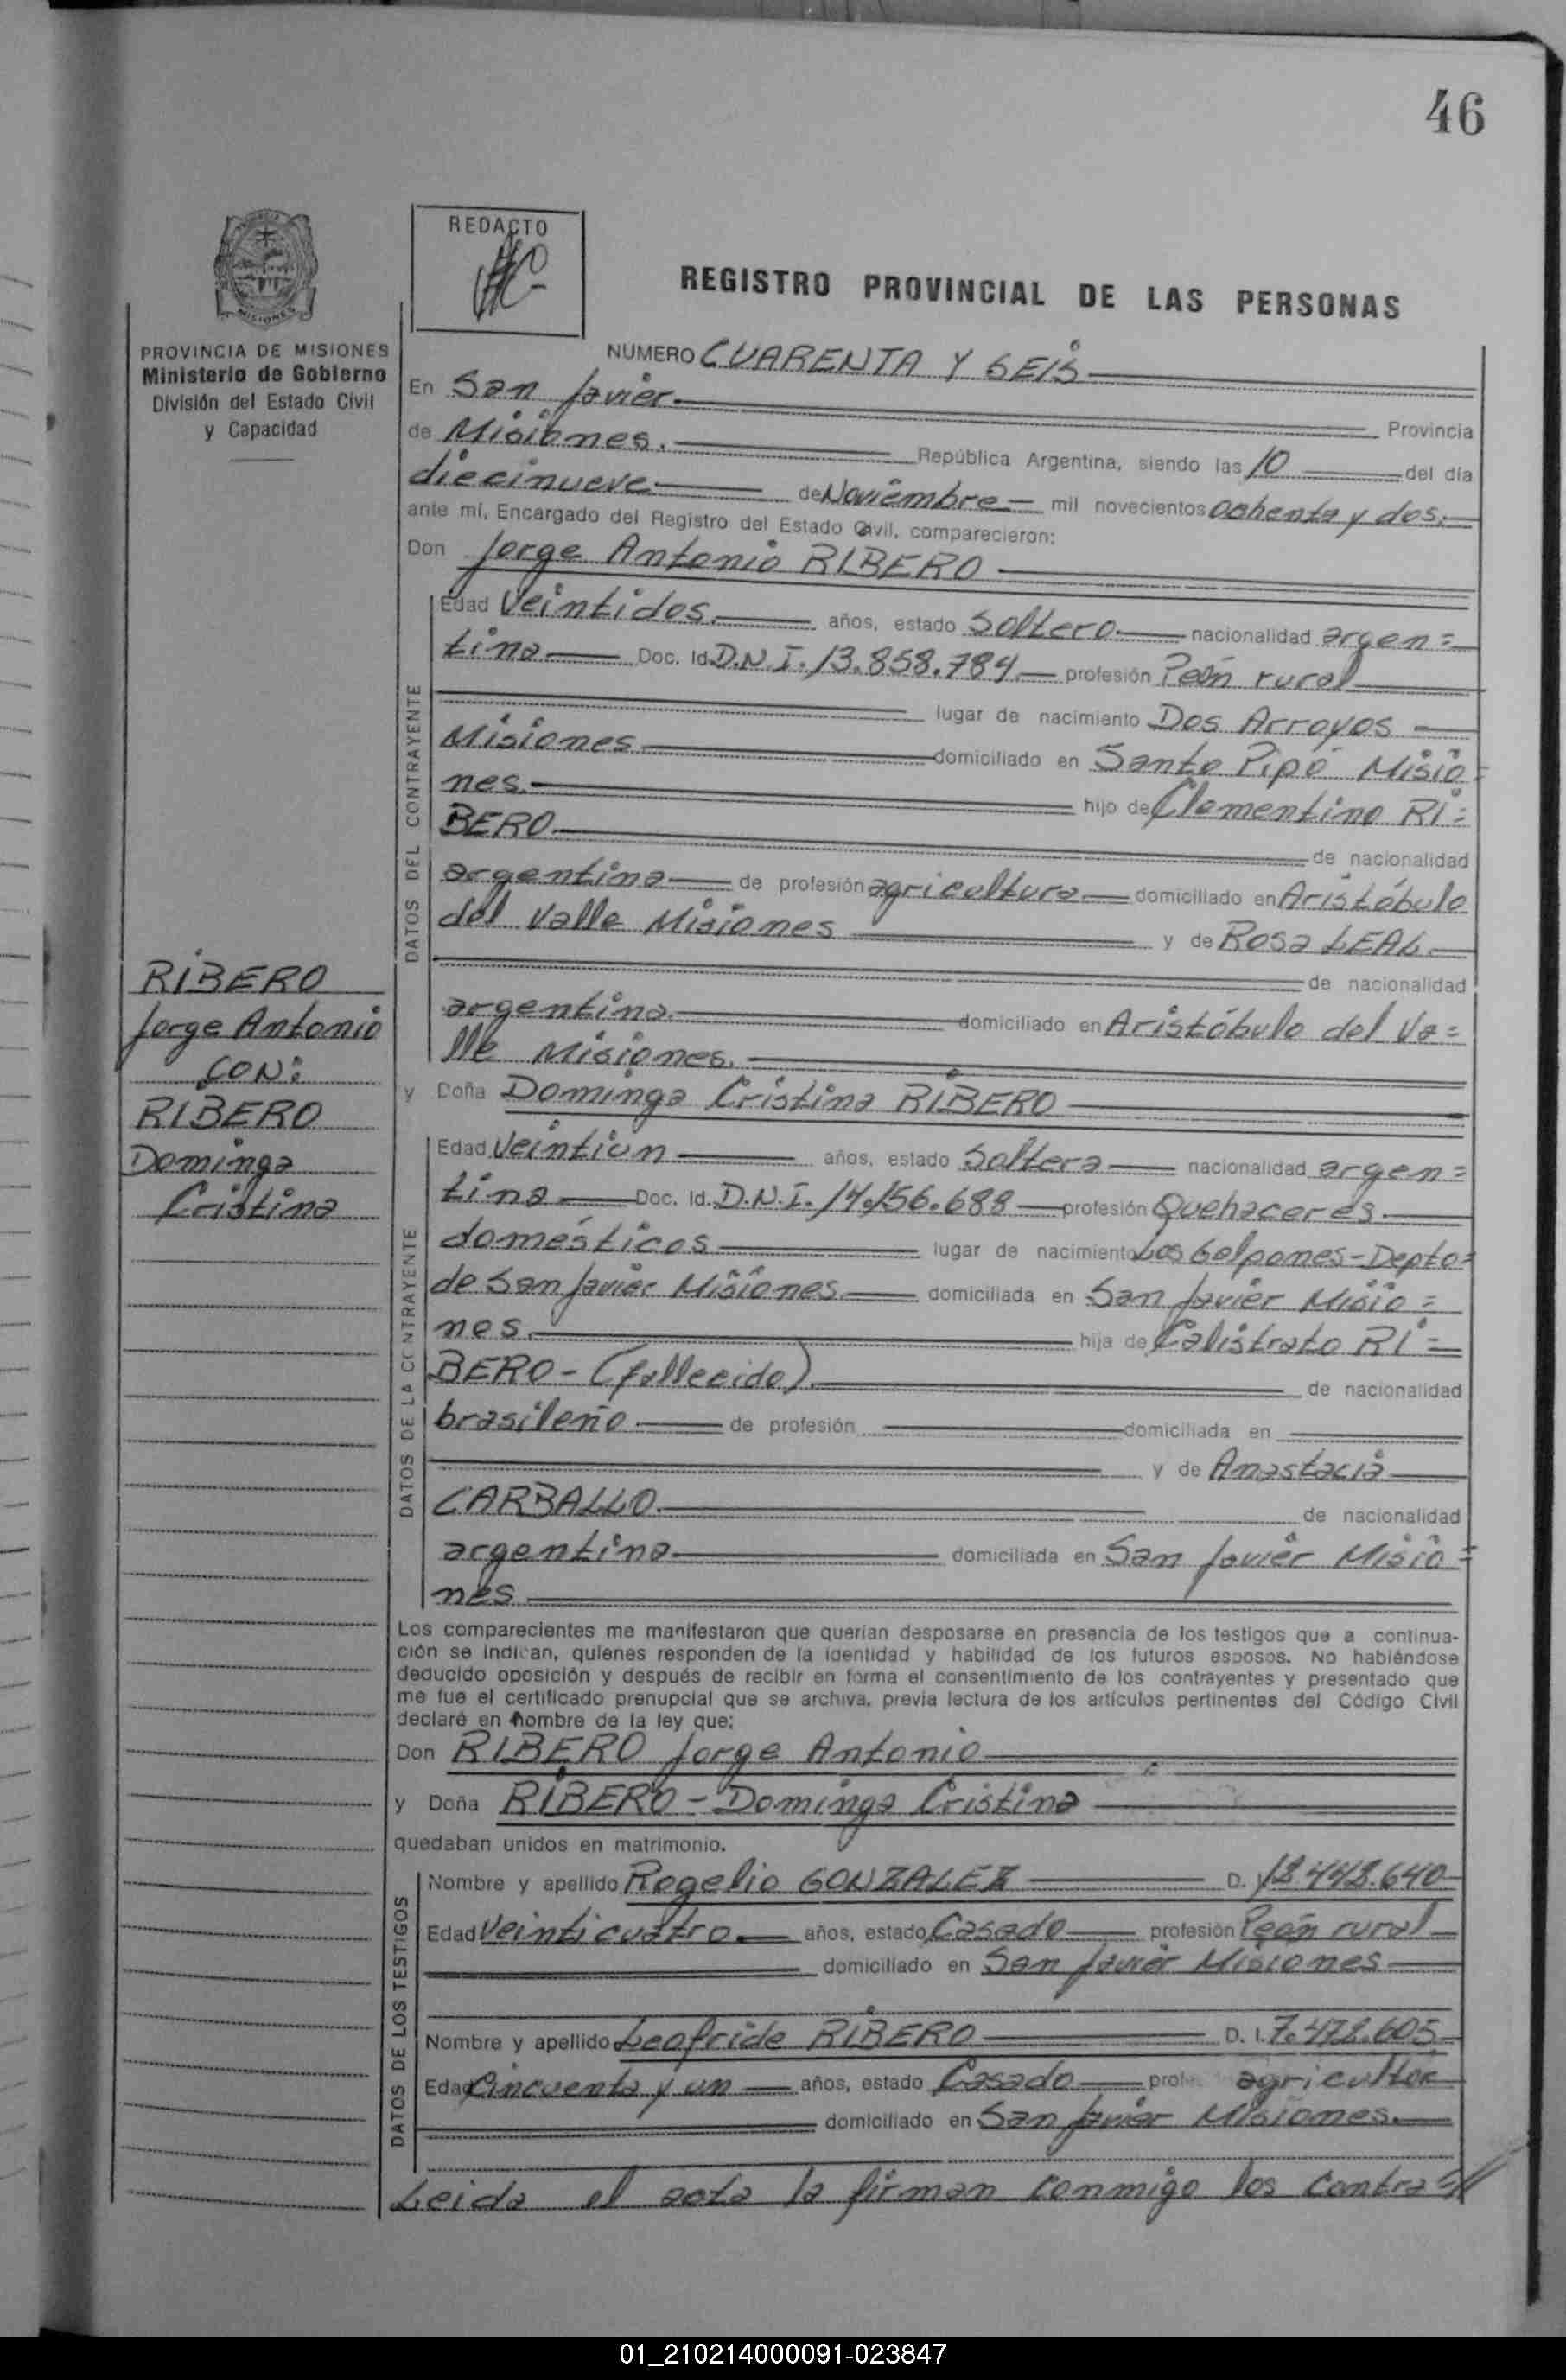 46
REDACTO
REGISTRO PROVINCIAL DE LAS PERSONAS
PROVINCIA DE MISIONES
Ministerio de Gobierno
División del Estado Civil
y Capacidad
RIBERO
Jorge Antonio
CON:
RIBERO
Dominga
Cristina
NUMERO CUARENTA Y SEIS
En San Javier. Provincia
de Misiones. República Argentina, siendo las 10 del día
diecinueve de Noviembre mil novecientos ochenta y dos.
ante mí, Encargado del Registro del Estado Civil, comparecieron:
Don Jorge Antonio RIBERO
DATOS DEL CONTRAYENTE
Edad Veintidos. años, estado Soltero nacionalidad argen=
tina Doc. Id. D.N.I. 13.858.784 profesión Peón rural
lugar de nacimiento Dos Arroyos
Misiones domiciliado en Santo Pipó Misio=
nes. hijo de Clementino RI=
BERO. de nacionalidad
argentina de profesión agricultura domiciliado en Aristóbulo
del Valle Misiones y de Rosa LEAL.
de nacionalidad
argentina. domiciliado en Aristóbulo del Va=
lle Misiones.
y Doña Dominga Cristina RIBERO
DATOS DE LA CONTRAYENTE
Edad Veintiun años, estado Soltera nacionalidad argen=
tina Doc. Id. D.N.I. 14.156.688 profesión Quehaceres.
domésticos lugar de nacimiento Los Galpones-Depto=
de San Javier Misiones. domiciliada en San Javier Misio=
nes. hija de Calistrato RI=
BERO-(fallecido). de nacionalidad
brasileño de profesión domiciliada en
y de Anastacia
CARBALLO. de nacionalidad
argentina. domiciliada en San Javier Misio=
nes
Los comparecientes me manifestaron que querían desposarse en presencia de los testigos que a continua-
ción se indican, quienes responden de la identidad y habilidad de los futuros esposos. No habiéndose
deducido oposición y después de recibir en forma el consentimiento de los contrayentes y presentado que
me fue el certificado prenupcial que se archiva, previa lectura de los artículos pertinentes del Código Civil
declaré en nombre de la ley que:
Don RIBERO Jorge Antonio
y Doña RIBERO-Dominga Cristina
quedaban unidos en matrimonio.
DATOS DE LOS TESTIGOS
Nombre y apellido Rogelio GONZALEZ D. I. 12.442.640
Edad Veinticuatro. años, estado Casado profesión Peón rural
domiciliado en San Javier Misiones
Nombre y apellido Leofride RIBERO D. I. 7.472.605
Edad Cincuenta y un años, estado Casado prof. agricultor
domiciliado en San Javier Misiones.
Leida el acta la firman conmigo los contra
01_210214000091-023847